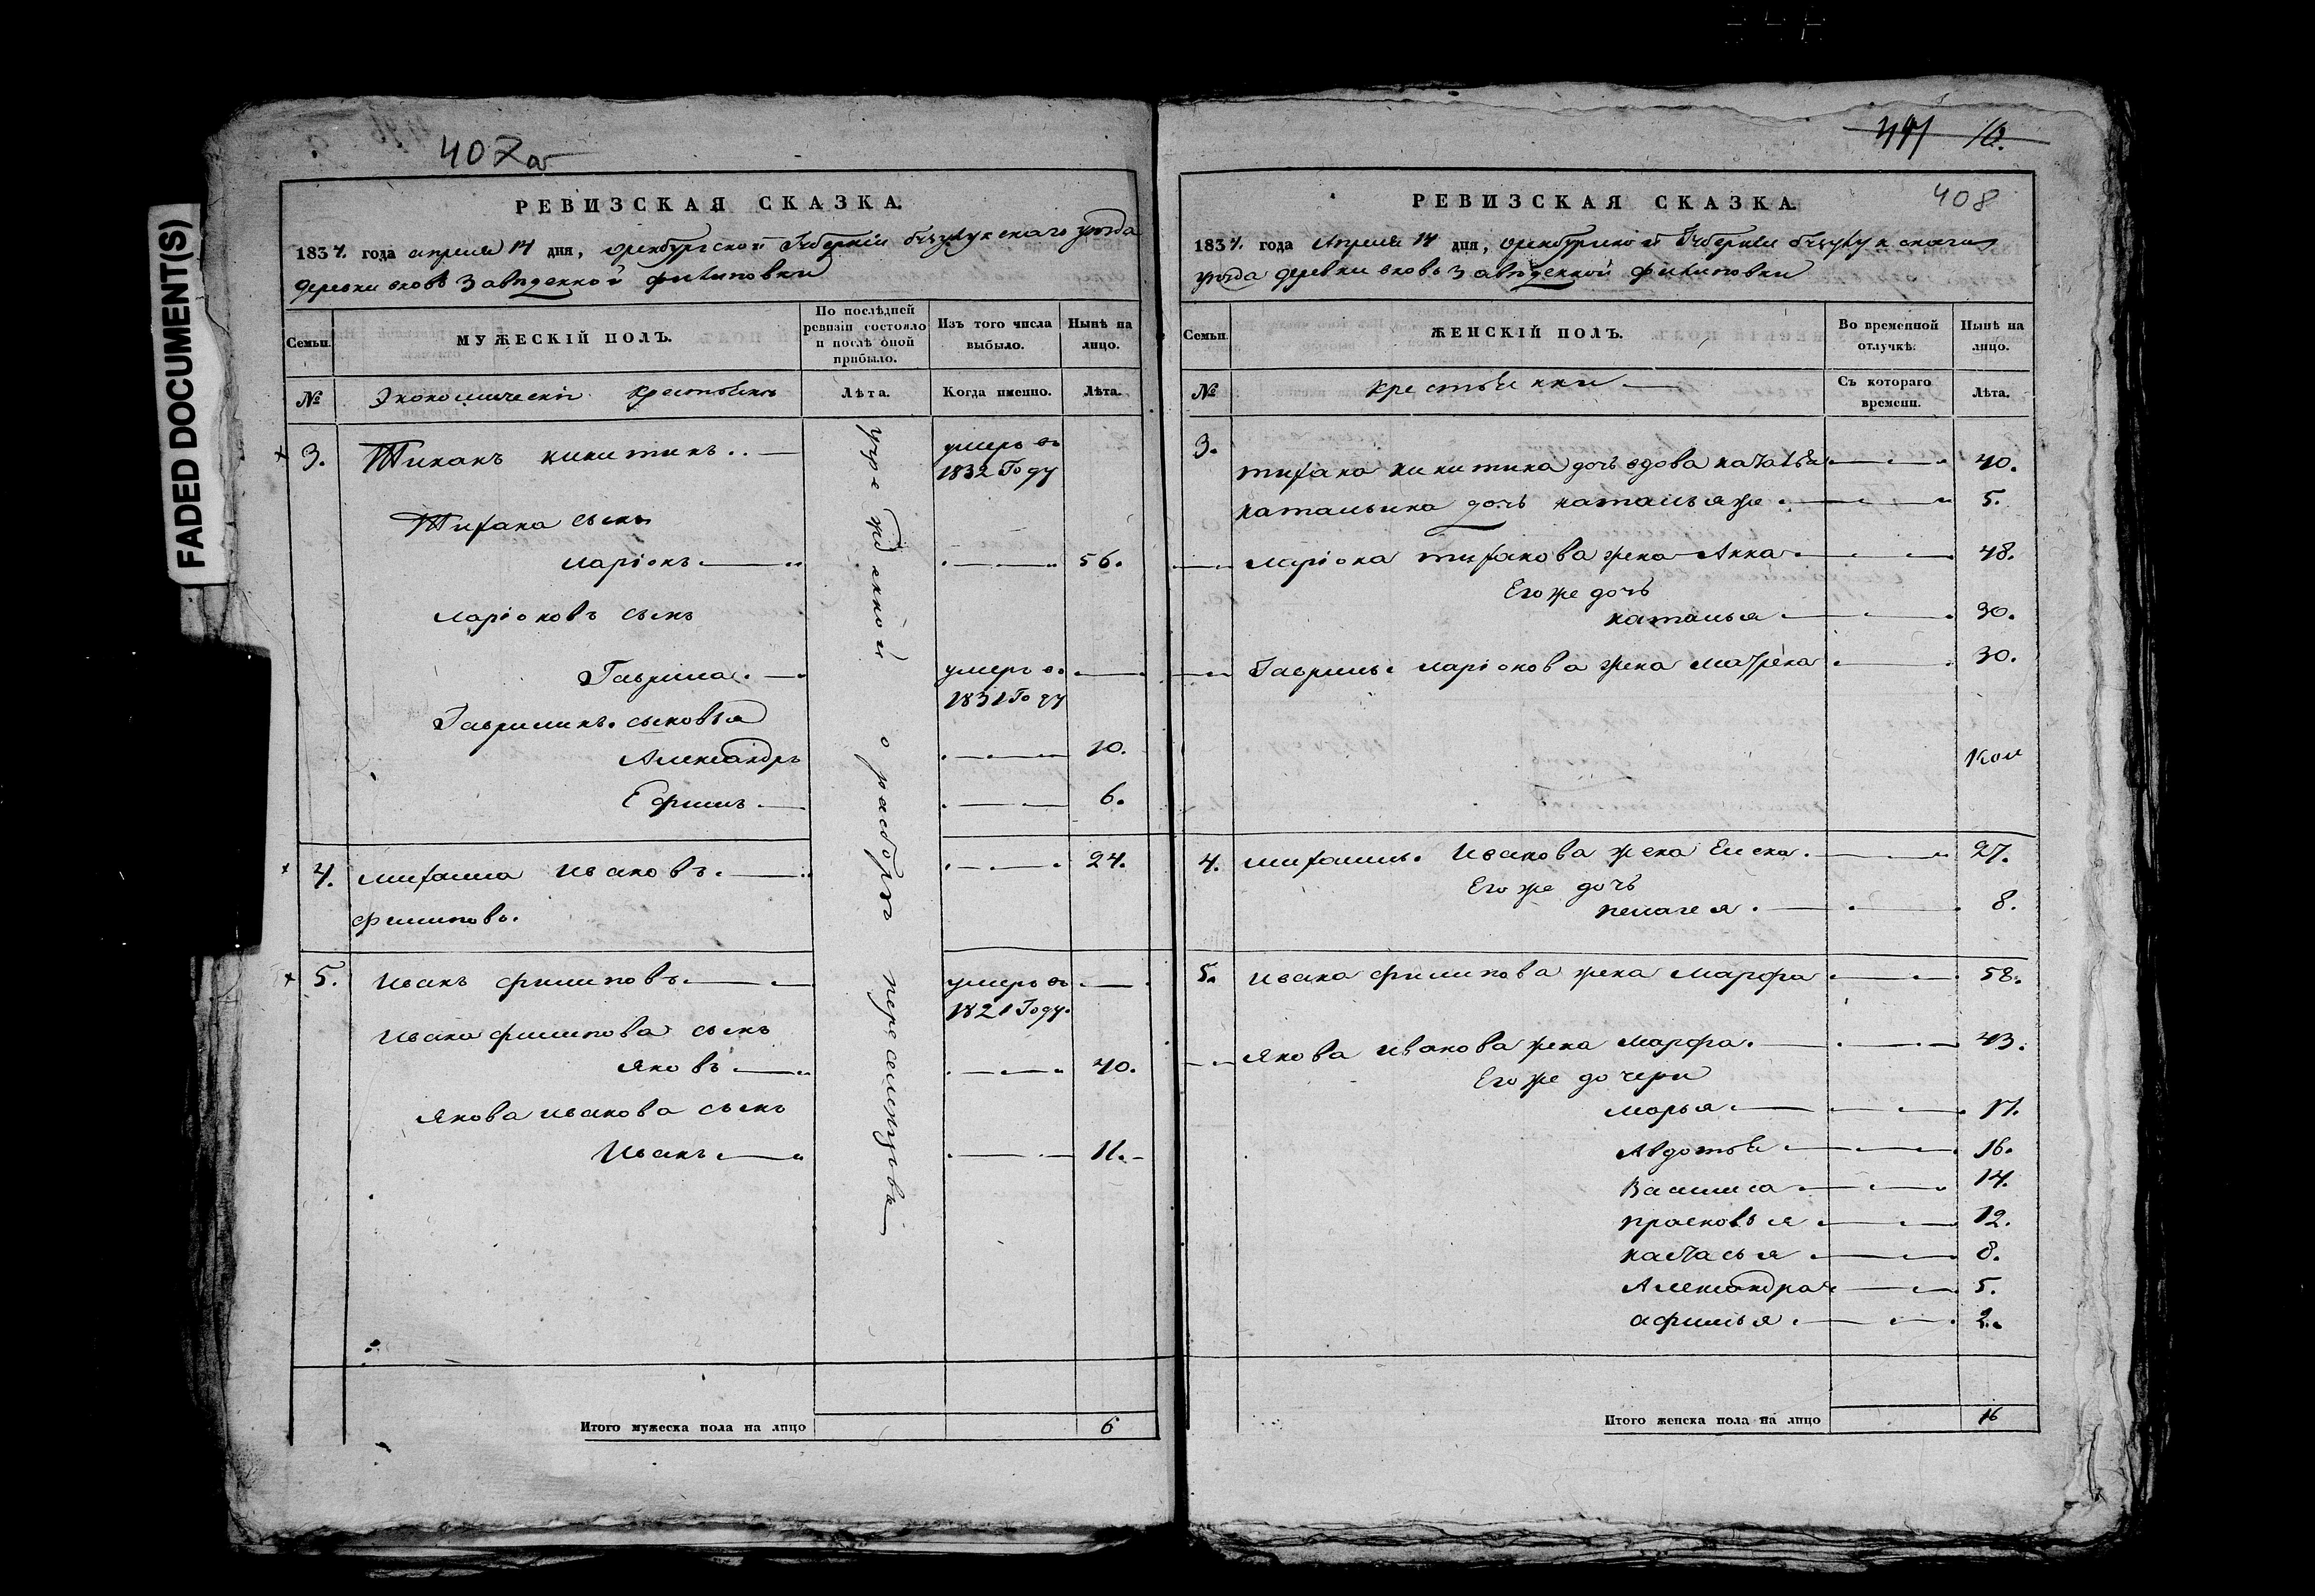 FADED DOCUMENT(S)
407а
РЕВИЗСКАЯ СКАЗКА.
1834. года апреля 14 дня, оренбургской Губерніи бузулукскаго уѣзда
деревни вновь Заведенной филиповки
Семьи.
МУЖЕСКІЙ ПОЛЪ.
По послѣдней ревизіи состояло и послѣ оной прибыло.
Изъ того числа выбыло.
Нынѣ на лицо.
№
Экономическіе крестьяне
Лѣта.
Когда именно.
Лѣта.
3. Тиханъ никитинъ умеръ въ
1832 Году
Тихана сынъ
ларіонъ 56.
ларіоновъ сынъ
Гаврила умеръ въ
1831 Году
Гаврилины сыновья
Александръ 10.
Ефимъ 6.
4. михаила ивановъ 24.
филиповъ.
5. иванъ филиповъ умеръ въ
1821 Году.
ивана филипова сынъ
яковъ 40.
якова иванова сынъ
Иванъ 11.
о разборѣ переселенцовъ
Итого мужеска пола на лицо 6
441 10.
408
РЕВИЗСКАЯ СКАЗКА.
1834. года Апреля 14 дня, оренбургской Губерніи бузулукскаго
уѣзда деревни вновь Заведенной филиповки
Семьи.
ЖЕНСКІЙ ПОЛЪ.
Во временной отлучкѣ.
Нынѣ на лицо.
№
крестьянки
Съ котораго времени.
Лѣта.
3.
тихана никитина дочь вдова наталья 40.
натальина дочь наталья же 5.
ларіона тиханова жена Анна 48.
Его же дочь
наталья 30.
Гаврилы ларіонова жена матрена 30.
4. михаилы Иванова жена Елена 27.
Его же дочь
пелагея 8.
5. ивана филипова жена марфа 58.
якова иванова жена марфа 43.
Его же дочери
марья 17.
Авдотья 16.
Василиса 14.
прасковья 12.
настасья 8.
Александра 5.
афимья 2.
Итого женска пола на лицо 16